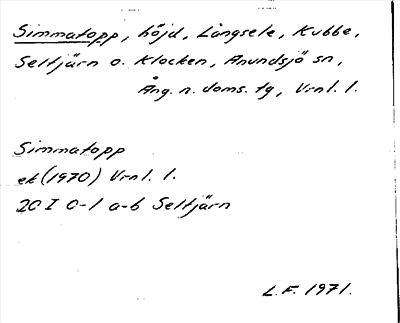 Simmatopp, höjd, Långsele, Kubbe,
Seltjärn o. Klocken, Anundsjö sn,
Ång. n. doms. tg, Vrnl. l.
Simmatopp
ek (1970) Vrnl. l.
20 I 0-1 a-b Seltjärn
L.F. 1971.